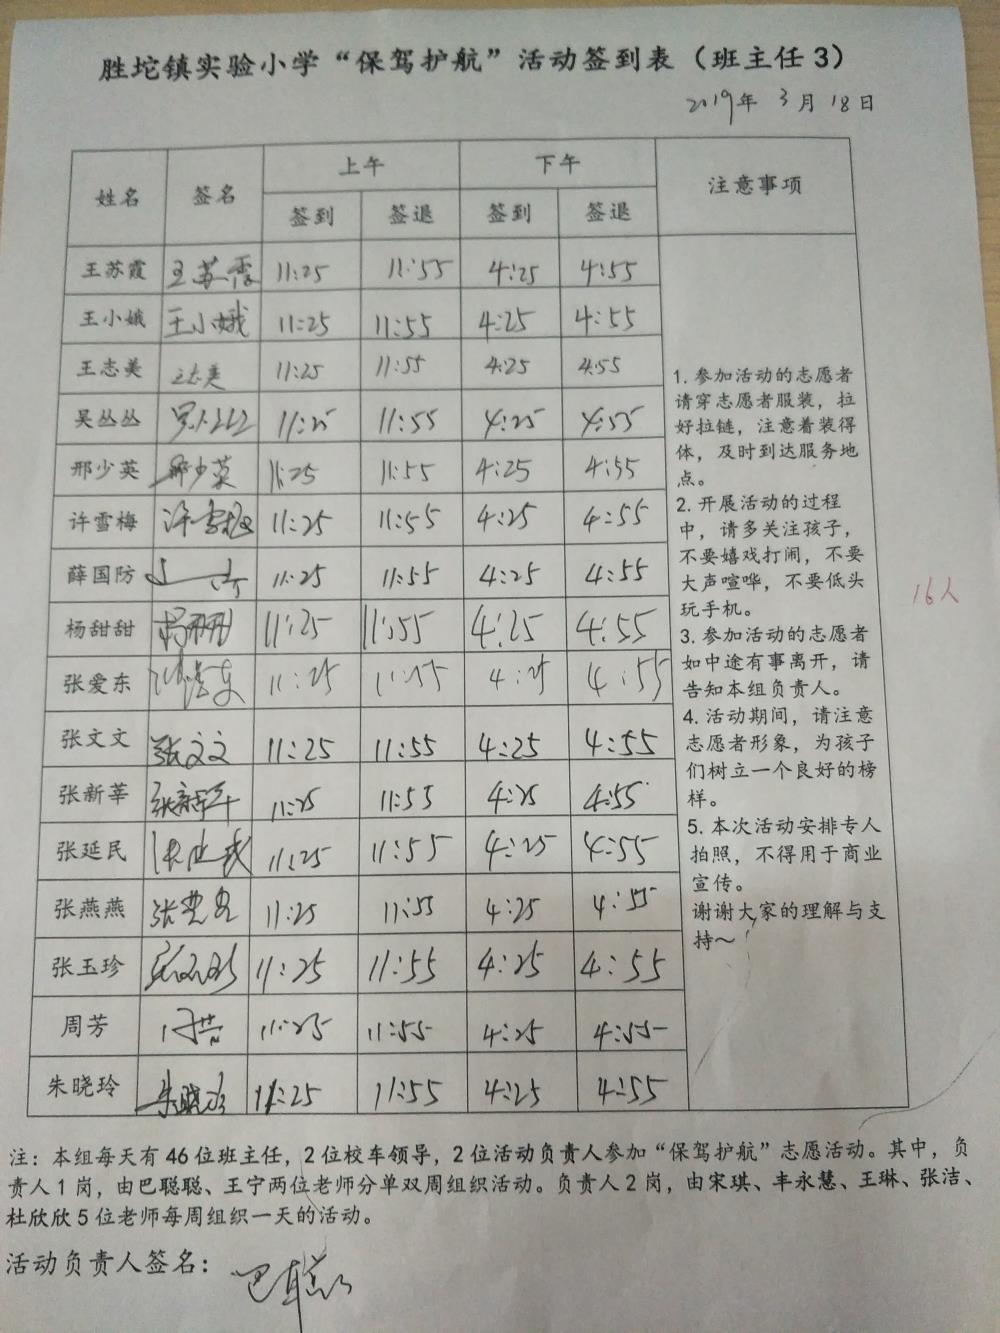 胜坨镇实验小学“保驾护航”活动签到表（班主任3）
2019年 3月 18日
姓名 签名 上午 下午 注意事项
签到 签退 签到 签退
王苏霞 王苏霞 11:25 11:55 4:25 4:55
王小娥 王小娥 11:25 11:55 4:25 4:55
王志美 11:25 11:55 4:25 4:55
吴丛丛 11:25 11:55 4:25 4:55
邢少英 11:25 11:55 4:25 4:55
许雪梅 许雪梅 11:25 11:55 4:25 4:55
薛国防 11:25 11:55 4:25 4:55
杨甜甜 杨甜甜 11:25 11:55 4:25 4:55
张爱东 11:25 11:55 4:25 4:55
张文文 张文文 11:25 11:55 4:25 4:55
张新莘 张新莘 11:25 11:55 4:25 4:55
张延民 11:25 11:55 4:25 4:55
张燕燕 11:25 11:55 4:25 4:55
张玉珍 11:25 11:55 4:25 4:55
周芳 周芳 11:25 11:55 4:25 4:55
朱晓玲 朱晓玲 11:25 11:55 4:25 4:55
1. 参加活动的志愿者
请穿志愿者服装，拉
好拉链，注意着装得
体，及时到达服务地
点。
2. 开展活动的过程
中，请多关注孩子，
不要嬉戏打闹，不要
大声喧哗，不要低头
玩手机。
3. 参加活动的志愿者
如中途有事离开，请
告知本组负责人。
4. 活动期间，请注意
志愿者形象，为孩子
们树立一个良好的榜
样。
5. 本次活动安排专人
拍照，不得用于商业
宣传。
谢谢大家的理解与支
持～
16人
注：本组每天有46位班主任，2位校车领导，2位活动负责人参加“保驾护航”志愿活动。其中，负
责人1岗，由巴聪聪、王宁两位老师分单双周组织活动。负责人2岗，由宋琪、丰永慧、王琳、张洁、
杜欣欣5位老师每周组织一天的活动。
活动负责人签名：巴聪聪